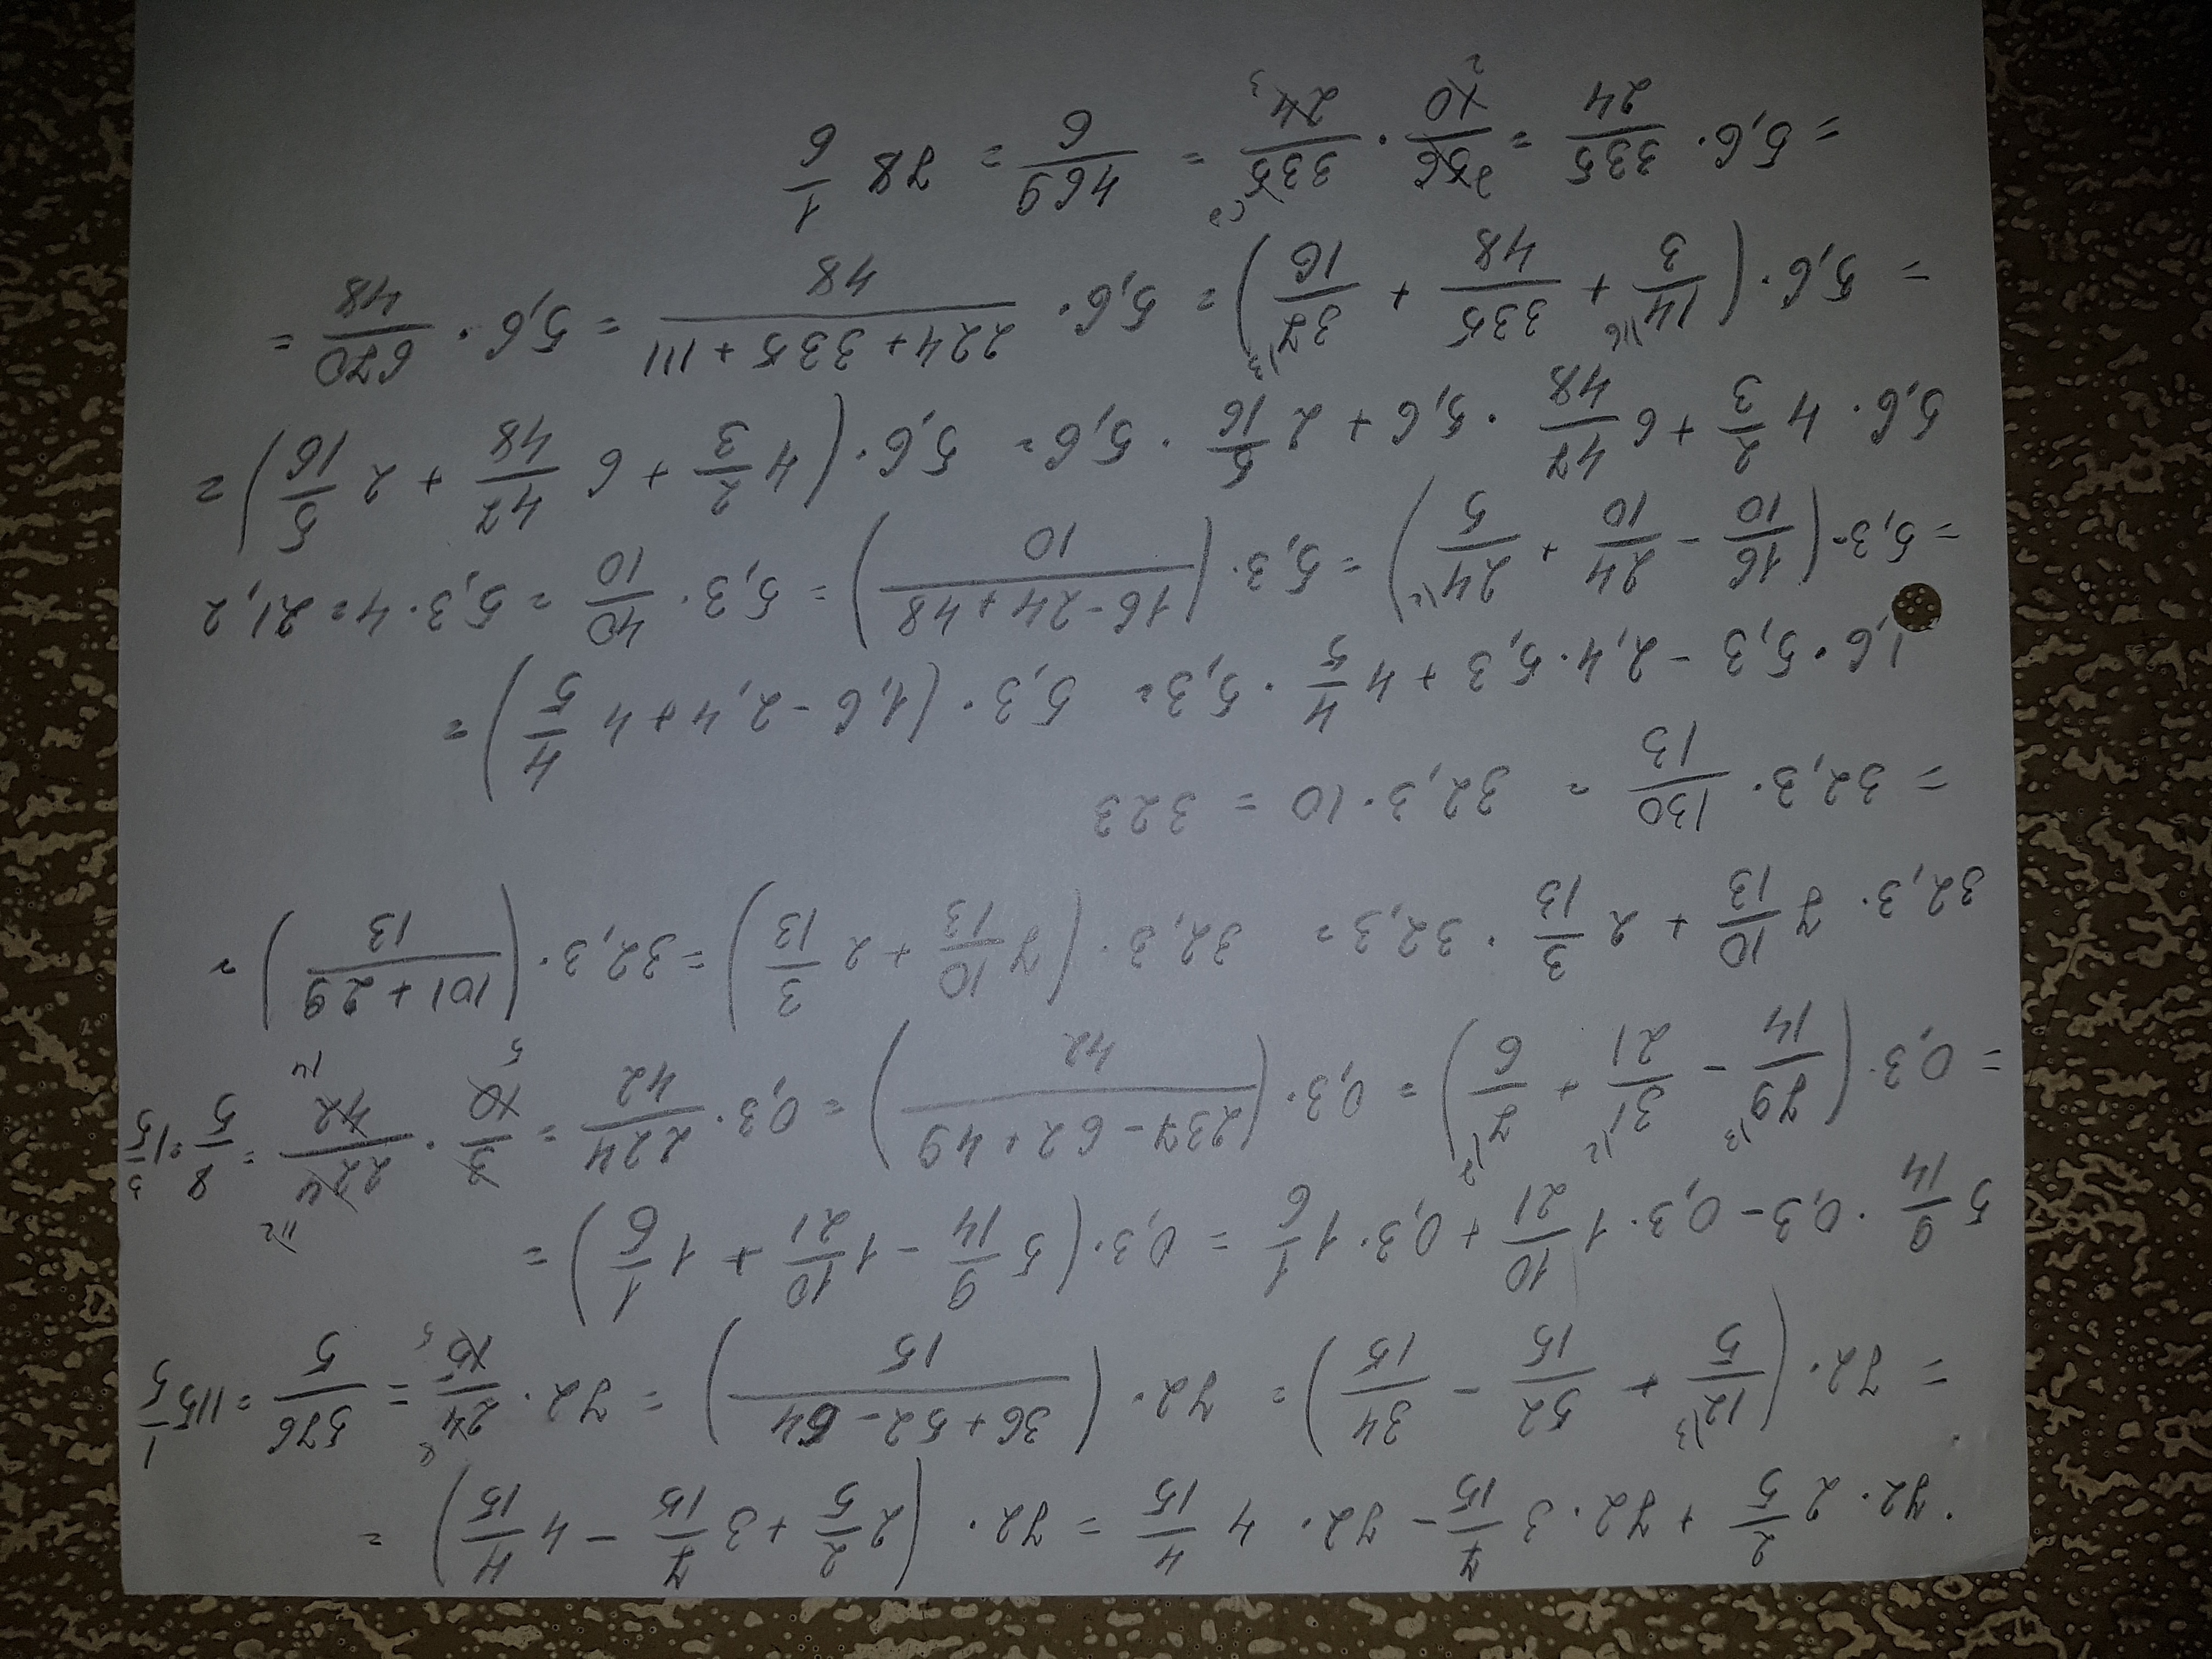 72 · 2 2/5 + 72 · 3 7/15 - 72 · 4 4/15 = 72 · (2 2/5 + 3 7/15 - 4 4/15) =
= 72 · (12/5 + 52/15 - 34/15) = 72 · (36 + 52 - 64/15) = 72 · 24/15 = 576/5 = 115 1/5
5 9/14 · 0,3 - 0,3 · 1 10/21 + 0,3 · 1 1/6 = 0,3 · (5 9/14 - 1 10/21 + 1 1/6) =
= 0,3 · (79/14 - 31/21 + 7/6) = 0,3 · (237 - 62 + 49/42) = 0,3 · 224/42 = 3/10 · 224/42 = 8/5 = 1 3/5
32,3 · 7 10/13 + 2 3/13 · 32,3 = 32,3 · (7 10/13 + 2 3/13) = 32,3 · (101 + 29/13) =
= 32,3 · 130/13 = 32,3 · 10 = 323
1,6 · 5,3 - 2,4 · 5,3 + 4 4/5 · 5,3 = 5,3 · (1,6 - 2,4 + 4 4/5) =
= 5,3 · (16/10 - 24/10 + 24/5) = 5,3 · (16 - 24 + 48/10) = 5,3 · 40/10 = 5,3 · 4 = 21,2
5,6 · 4 2/3 + 6 47/48 · 5,6 + 2 5/16 · 5,6 = 5,6 · (4 2/3 + 6 47/48 + 2 5/16) =
= 5,6 · (14/3 + 335/48 + 37/16) = 5,6 · 224 + 335 + 111/48 = 5,6 · 670/48 =
= 5,6 · 335/24 = 56/10 · 335/24 = 469/6 = 78 1/6